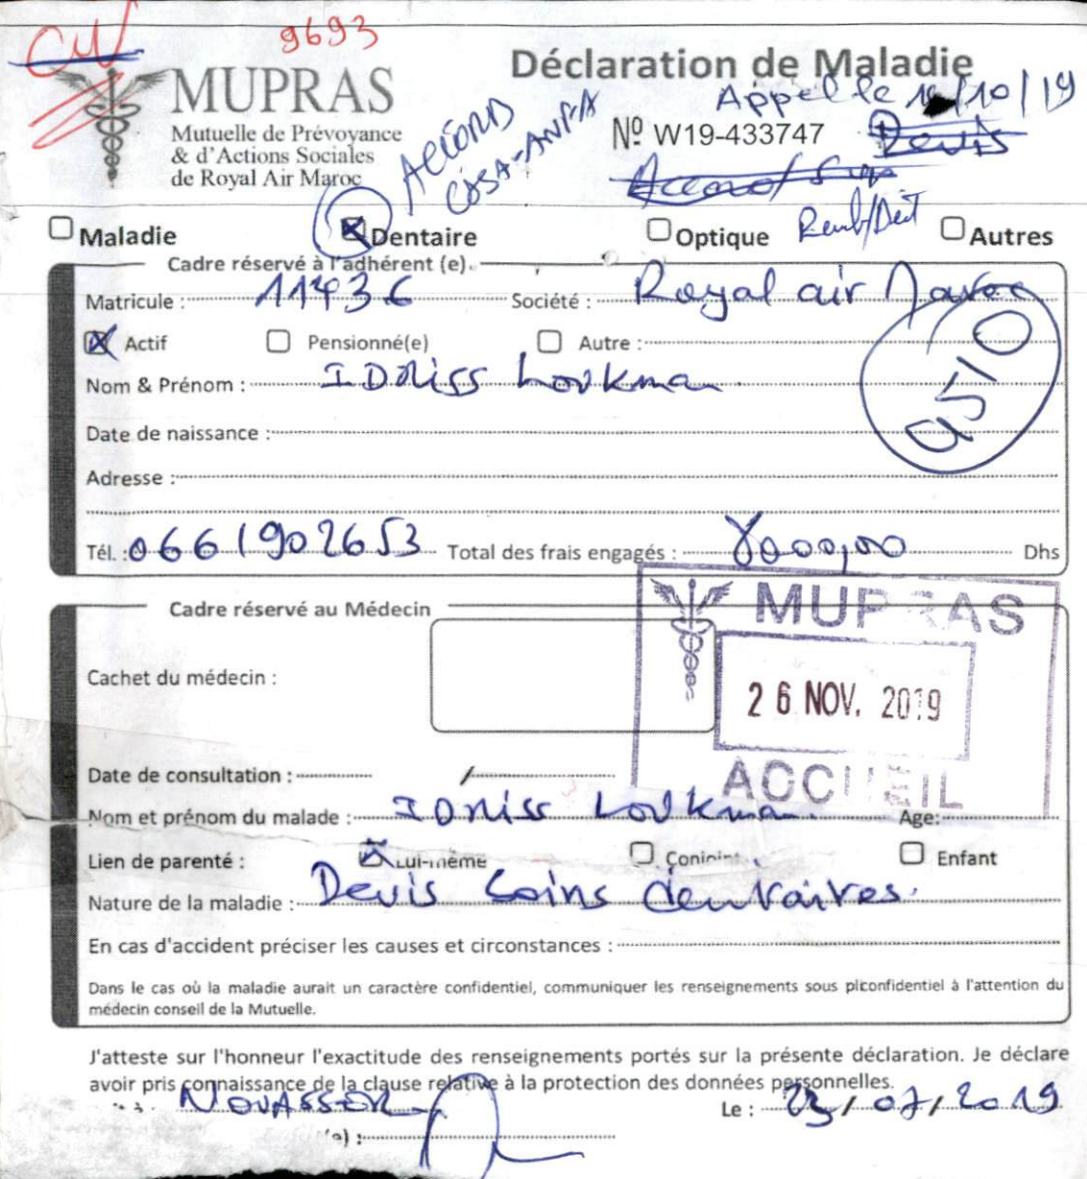 9693
MUPRAS
Mutuelle de Prévoyance
& d'Actions Sociales
de Royal Air Maroc
Déclaration de Maladie
Appel le /10/19
Nº W19-433747
Devis
ACCORD
CASA-ANFA
Accord
Remb/
Maladie
Dentaire
Optique
Autres
Cadre réservé à l'adhérent (e)
Matricule : 11436 Société : Royal air Maroc
Actif Pensionné(e) Autre :
Nom & Prénom : IDriss Loukman
9510
Date de naissance :
Adresse :
Tél. : 0661902653 Total des frais engagés : 8000,00 Dhs
Cadre réservé au Médecin
MUPRAS
Cachet du médecin :
26 NOV. 2019
ACCUEIL
Date de consultation : /
Nom et prénom du malade : IDriss Loukman Age:
Lien de parenté : Lui-même Conjoint Enfant
Nature de la maladie : Devis Soins dentaires.
En cas d'accident préciser les causes et circonstances :
Dans le cas où la maladie aurait un caractère confidentiel, communiquer les renseignements sous pliconfidentiel à l'attention du
médecin conseil de la Mutuelle.
J'atteste sur l'honneur l'exactitude des renseignements portés sur la présente déclaration. Je déclare
avoir pris connaissance de la clause relative à la protection des données personnelles.
NOUASSER Le : 23/07/2019
(e) :